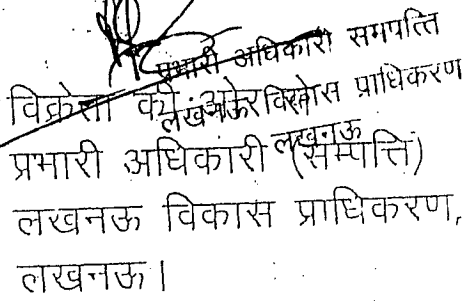 प्रभारी अधिकारी समपत्ति
लखनऊ विकास प्राधिकरण
लखनऊ
विक्रेता की ओर से
प्रभारी अधिकारी (सम्पत्ति)
लखनऊ विकास प्राधिकरण,
लखनऊ।